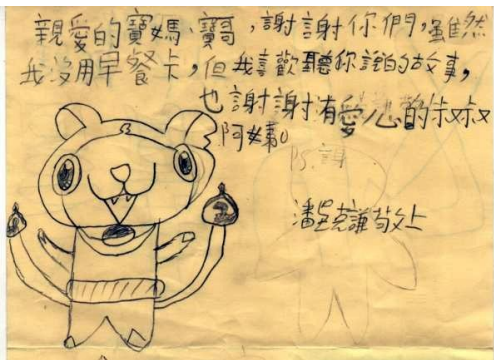 親愛的寶媽、寶哥,謝謝你們,雖然
我沒用早餐卡,但我喜歡聽你說的故事,
也謝謝有愛心的叔叔
阿姨。
PS.
敬上